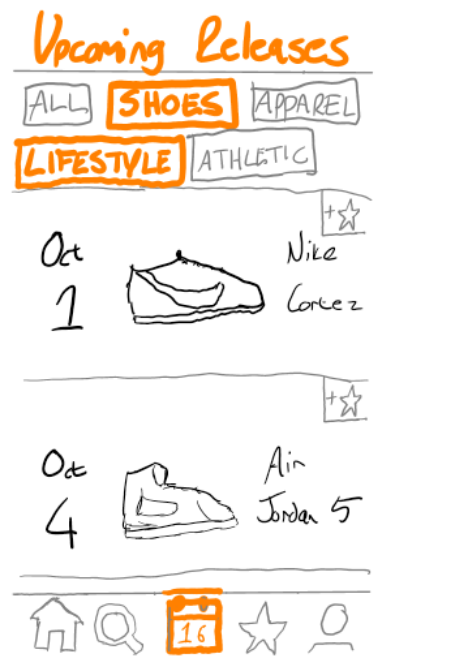 Upcoming Releases
ALL SHOES APPAREL
LIFESTYLE ATHLETIC
+
Oct Nike
1 Cortez
+
Oct Air
4 Jordan 5
16